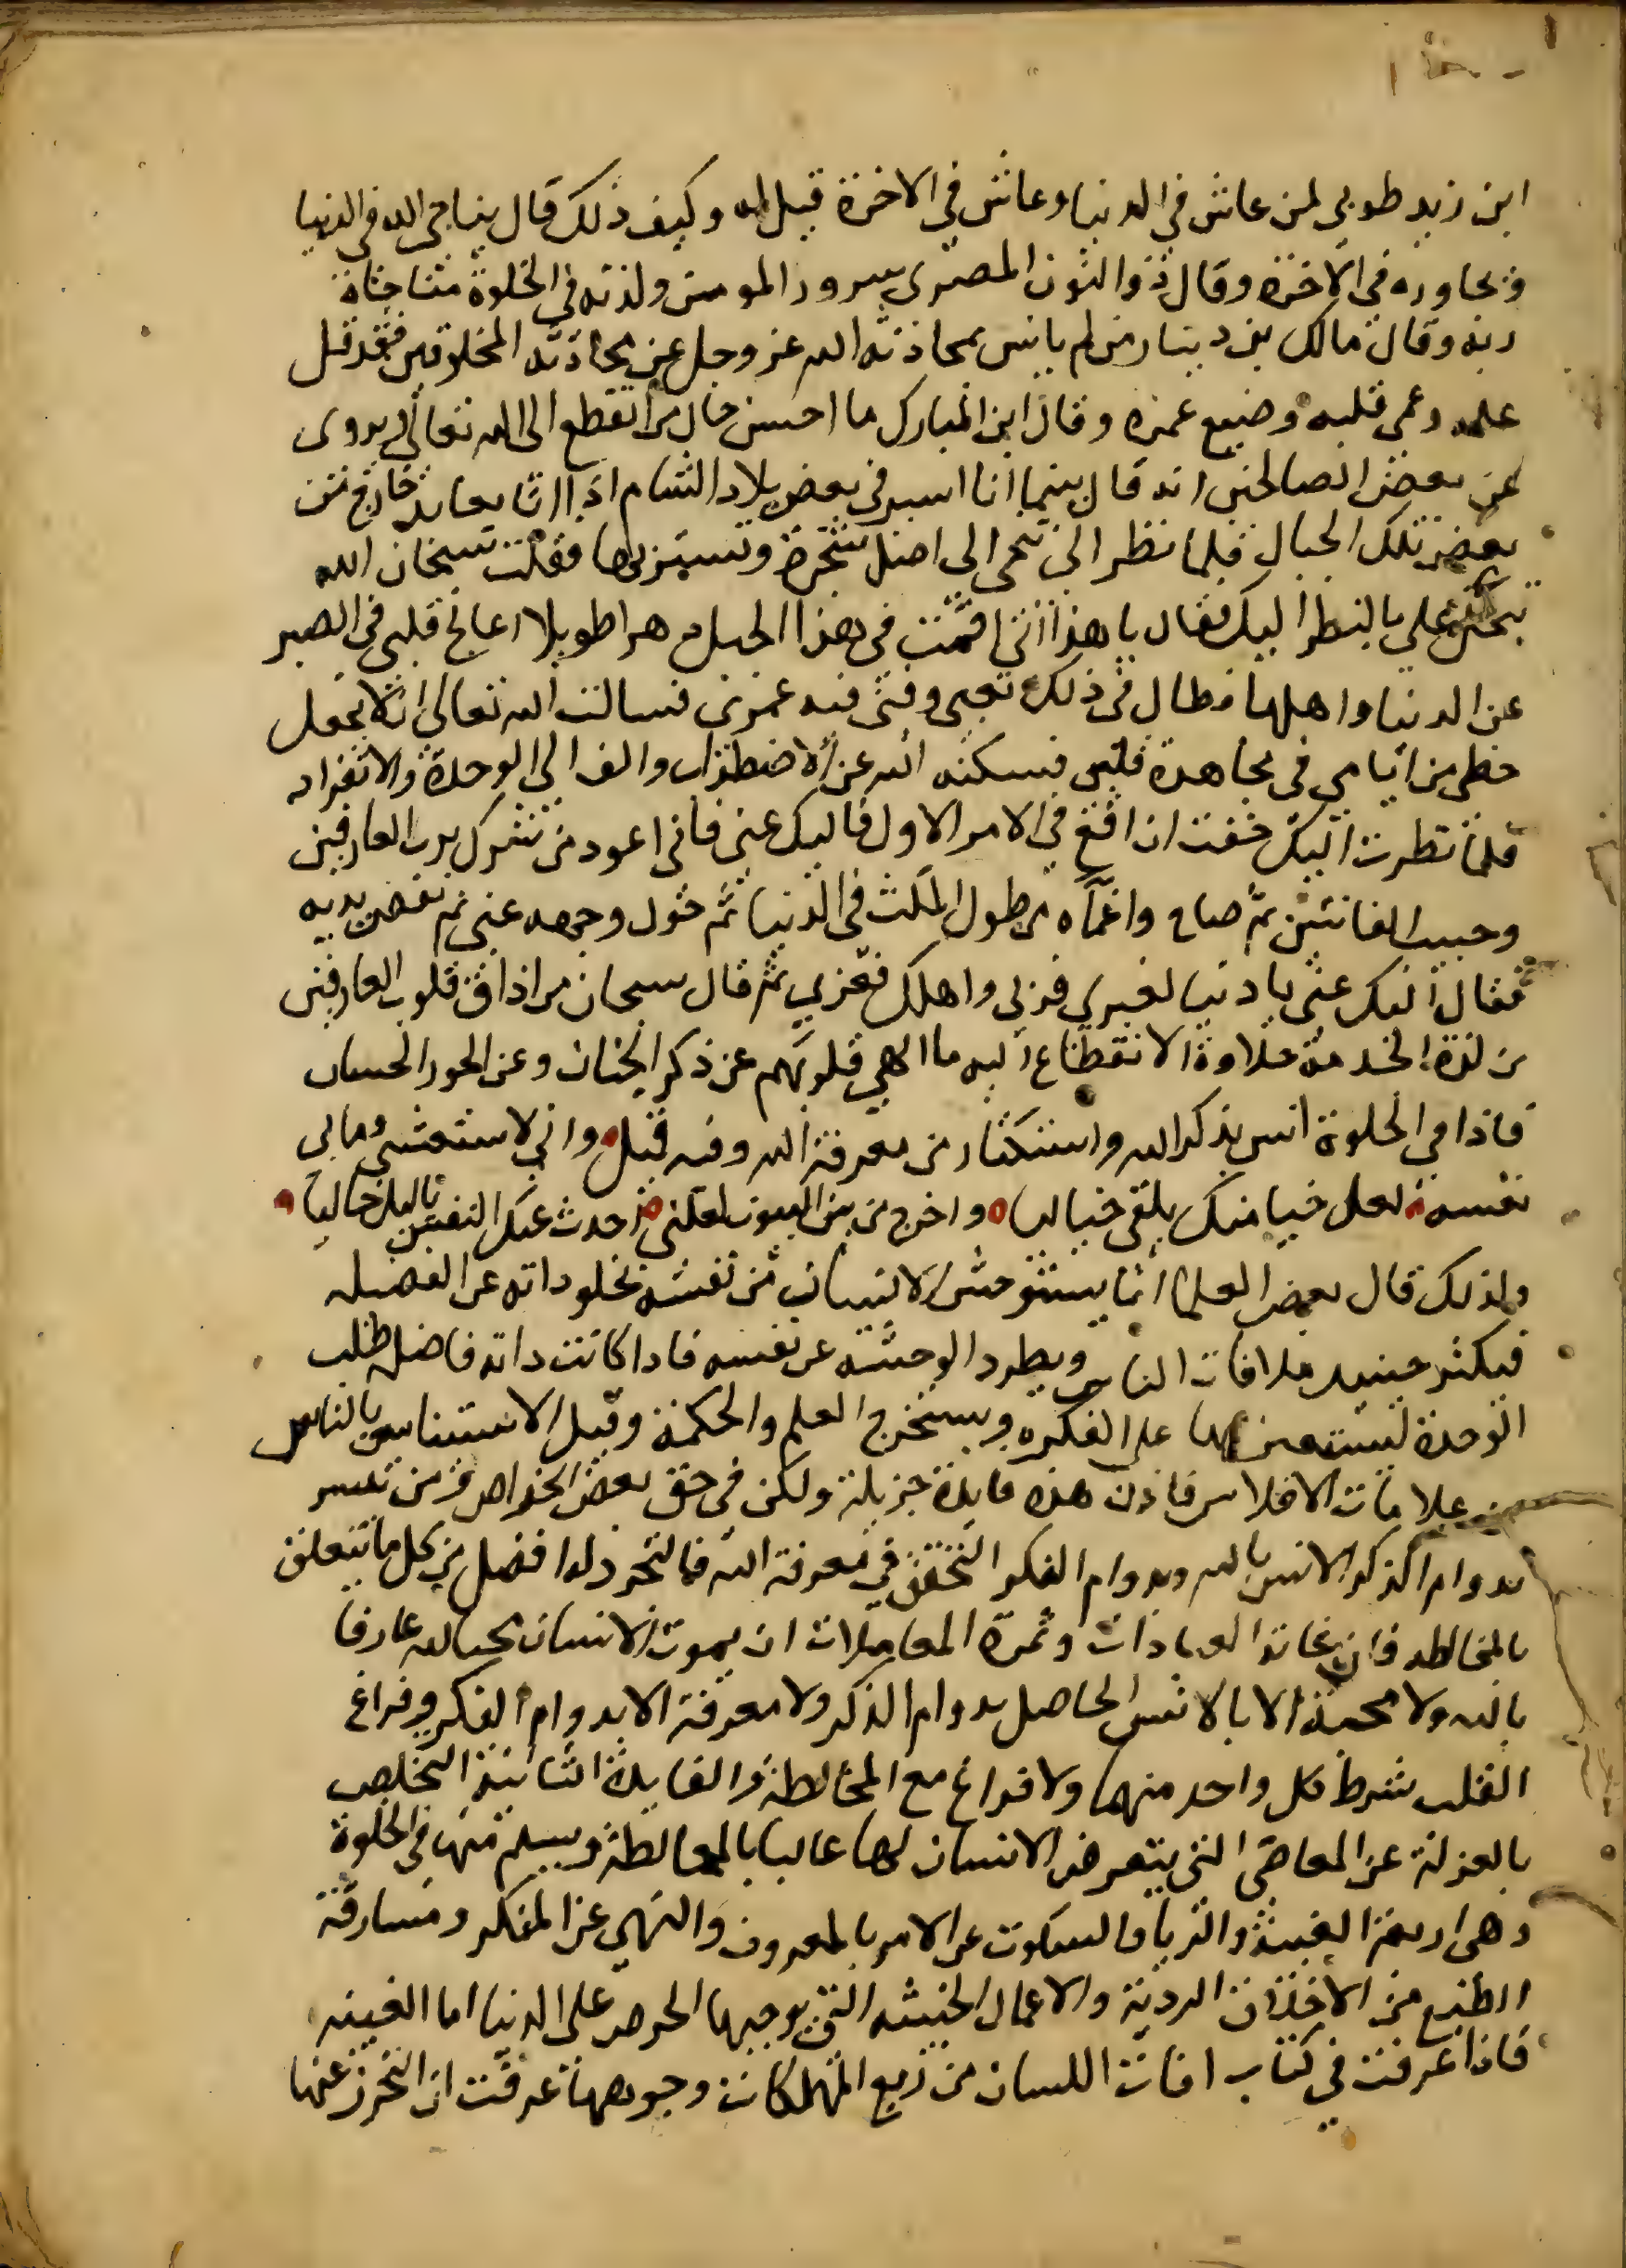 ابن زيد طوبى لمن عاش في الدنيا وعاش في الاخرة قيل له وكيف ذلك قال يناجي الله في الدنيا
ويجاوره في الاخرة وقال ذو النون المصري سرور المومن ولذته في الخلوة مناجاة
ربه وقال مالك بن دينار من لم يانس بمحادثة الله عز وجل عن محادثة المخلوقين فقد قل
علمه وعمى قلبه وضيع عمره وقال ابن المبارك ما احسن حال من انقطع الى الله تعالى ويروى
عن بعض الصالحين انه قال بينما انا اسير في بعض بلاد الشام اذا انا بعابد خارج من
بعض تلك الجبال فلما نظر الي تنحى الى اصل شجرة وتستر بها فقلت سبحان الله
تبخل علي بالنظر اليك فقال يا هذا اني اقمت في هذا الجبل دهرا طويلا اعالج قلبي في الصبر
عن الدنيا واهلها فطال في ذلك تعبي وفنى فيه عمري فسالت الله تعالى ان لا يجعل
حظي من ايامي في مجاهدة قلبي فسكنه الله عن الاضطراب والف الى الوحدة والانفراد
فلما نظرت اليك خفت ان اقع في الامر الاول فاليك عني فاني اعوذ من شرك برب العارفين
وحبيب القانتين ثم صاح واغماه من طول المكث في الدنيا ثم حول وجهه عني ثم نفض يديه
فقال اليك عني يا دنيا لغيري فزيني واهلك فغري ثم قال سبحان من اذاق قلوب العارفين
من لذة الخدمة حلاوة الانقطاع اليه ما الهى قلوبهم عن ذكر الجنان وعن الحور الحسان
فاذا في الخلوة انس بذكر الله واستكثار من معرفة الله وفيه قيل واني لاستغشي وما بي
نعسة لعل خيالا منك يلقى خياليا واخرج من بين البيوت لعلني احدث عنك النفس بالليل خاليا
ولذلك قال بعض العلما انما يستوحش الانسان من نفسه لخلو ذاته عن الفضيله
فيكثر حينيذ ملاقات الناس ويطرد الوحشة عن نفسه فاذا كانت ذاته فاضلة طلب
الوحدة ليستعين بها على الفكره ويستخرج العلم والحكمة وقيل الاستيناس بالناس
من علامات الافلاس فاذن هذه فايدة جزيلة ولكن في حق بعض الخواص ومن تيسر
بدوام الذكر الانس بالله وبدوام الفكر التحقق في معرفة الله فالتجرد له افضل من كل ما يتعلق
بالمخالطه فان غاية العبادات وثمرة المعاملات ان يموت الانسان محبا لله عارفا
بالله ولا محبة الا بالانس الحاصل بدوام الذكر ولا معرفة الا بدوام الفكر وفراغ
القلب شرط كل واحد منهما ولا فراغ مع المخالطة والفايدة الثانية التخلص
بالعزلة عن المعاصي التي يتعرض الانسان لها غالبا بالمخالطة ويسلم منها في الخلوة
وهي اربعة الغيبة والريا والسكوت عن الامر بالمعروف والنهي عن المنكر ومسارقة
الطبع من الاخلاق الردية والاعمال الخبيثه التي يوجبها الحرص على الدنيا اما الغيبه
فاذا عرفت في كتاب افات اللسان من ربع المهلكات وجوهها عرفت ان التحرز عنها